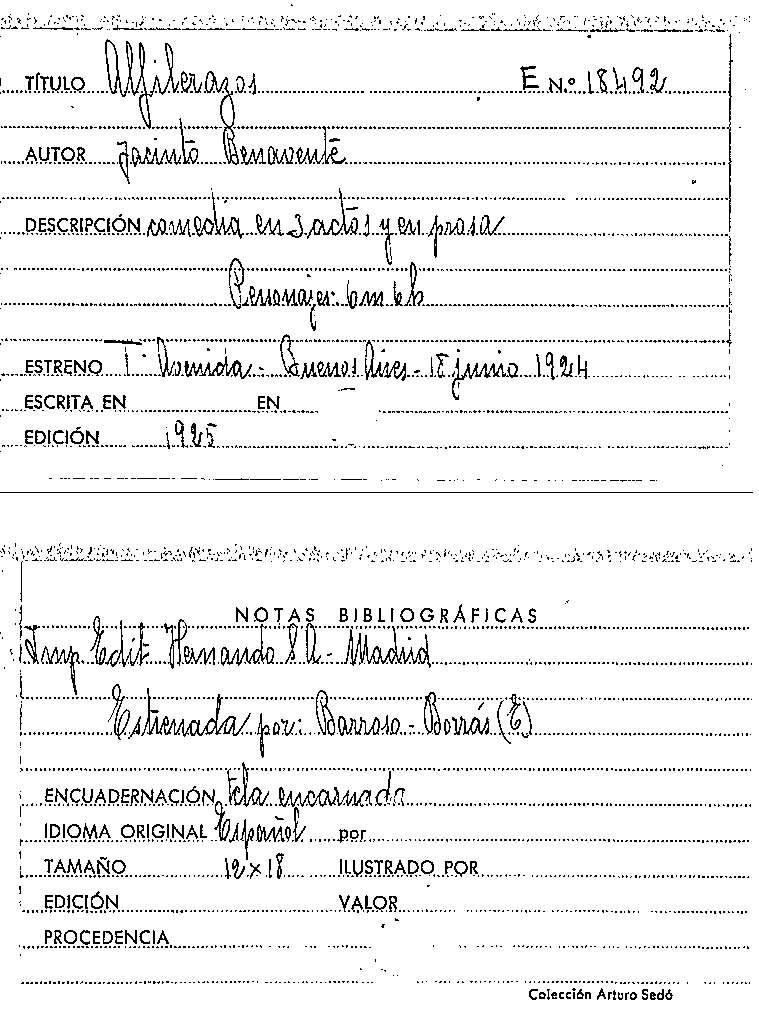 TÍTULO Alfilerazos E N.º 18492
AUTOR Jacinto Benavente
DESCRIPCIÓN comedia en 3 actos y en prosa
Personajes: 6m 6h
ESTRENO T. Avenida - Buenos Aires - 18 junio 1924
ESCRITA EN EN
EDICIÓN 1925
NOTAS BIBLIOGRÁFICAS
Imp. Edit. Hernando S.A. - Madrid
Estrenada por: Barroso - Borrás (E)
ENCUADERNACIÓN tela encarnada
IDIOMA ORIGINAL Español por
TAMAÑO 12 x 18 ILUSTRADO POR
EDICIÓN VALOR
PROCEDENCIA
Colección Arturo Sedó